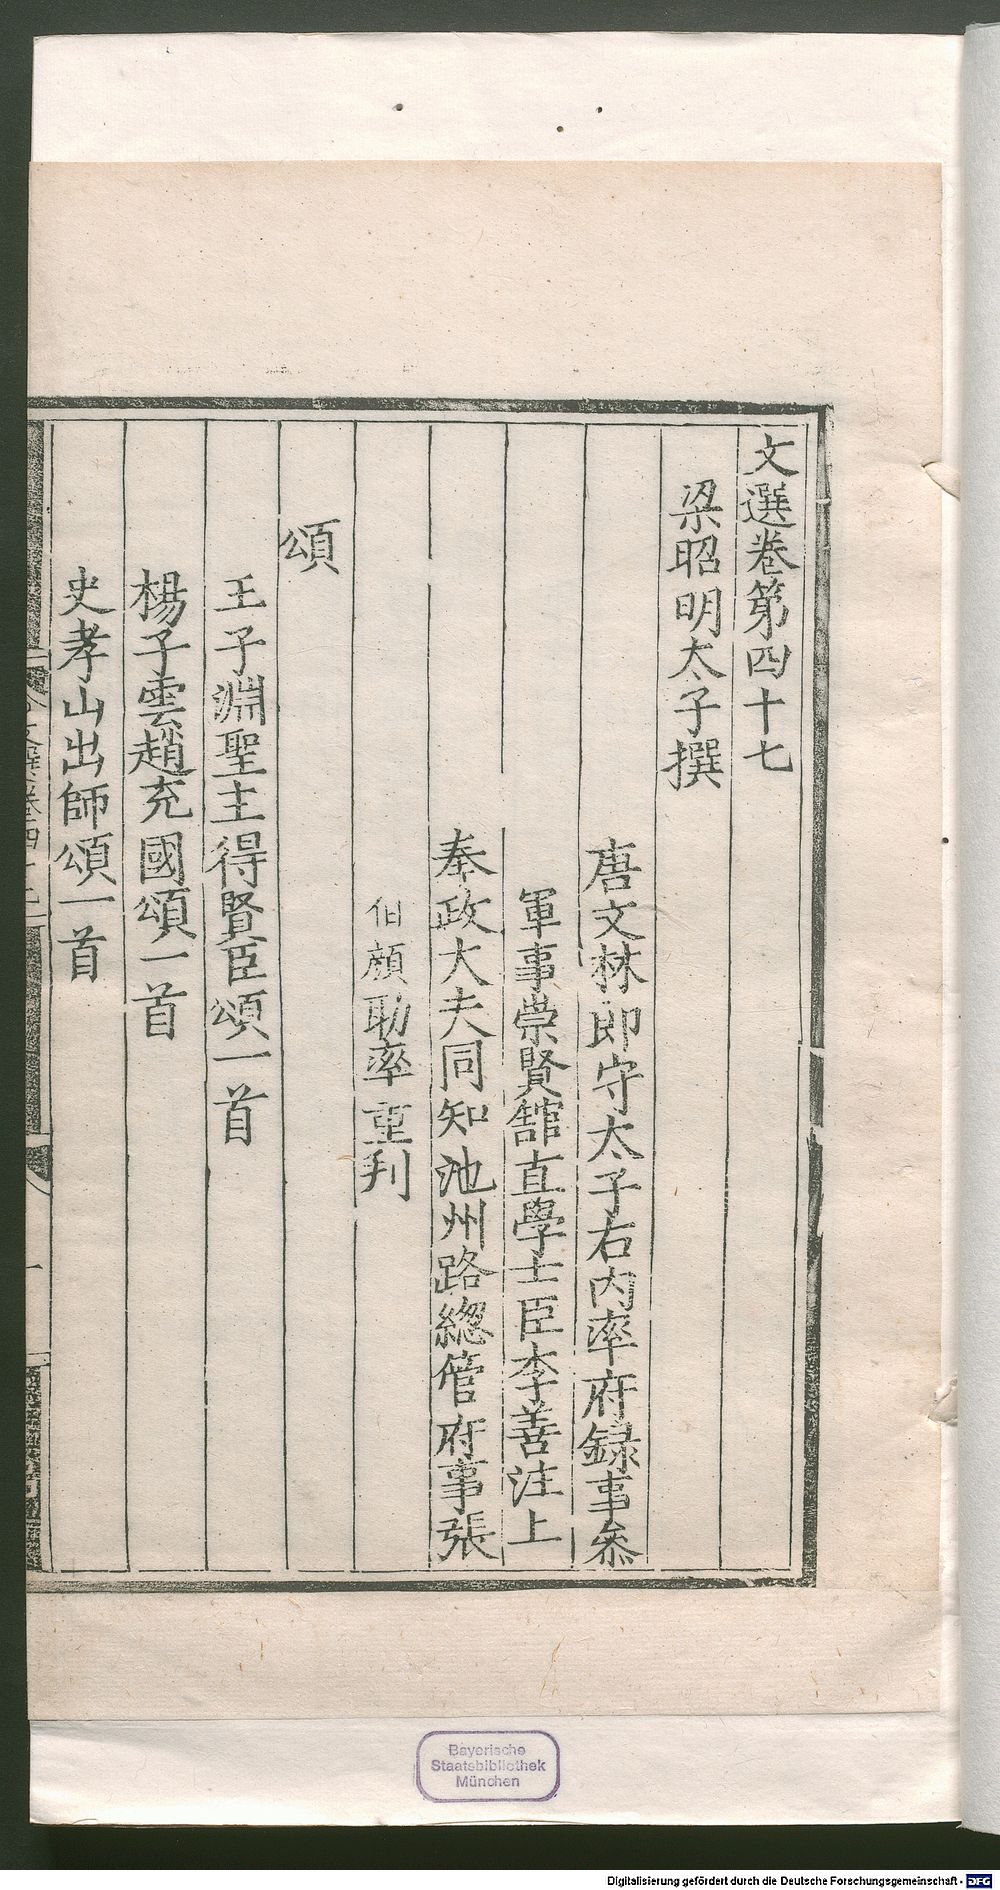 文選卷第四十七
梁昭明太子撰
唐文林郎守太子右内率府録事叅
軍事崇賢館直學士臣李善注上
奉政大夫同知池州路緫管府事張
伯顔助率重刋
頌
王子淵聖主得賢臣頌一首
楊子雲趙充國頌一首
史孝山出師頌一首
文選卷四十七
Bayerische
Staatsbibliothek
München
Digitalisierung gefördert durch die Deutsche Forschungsgemeinschaft - DFG